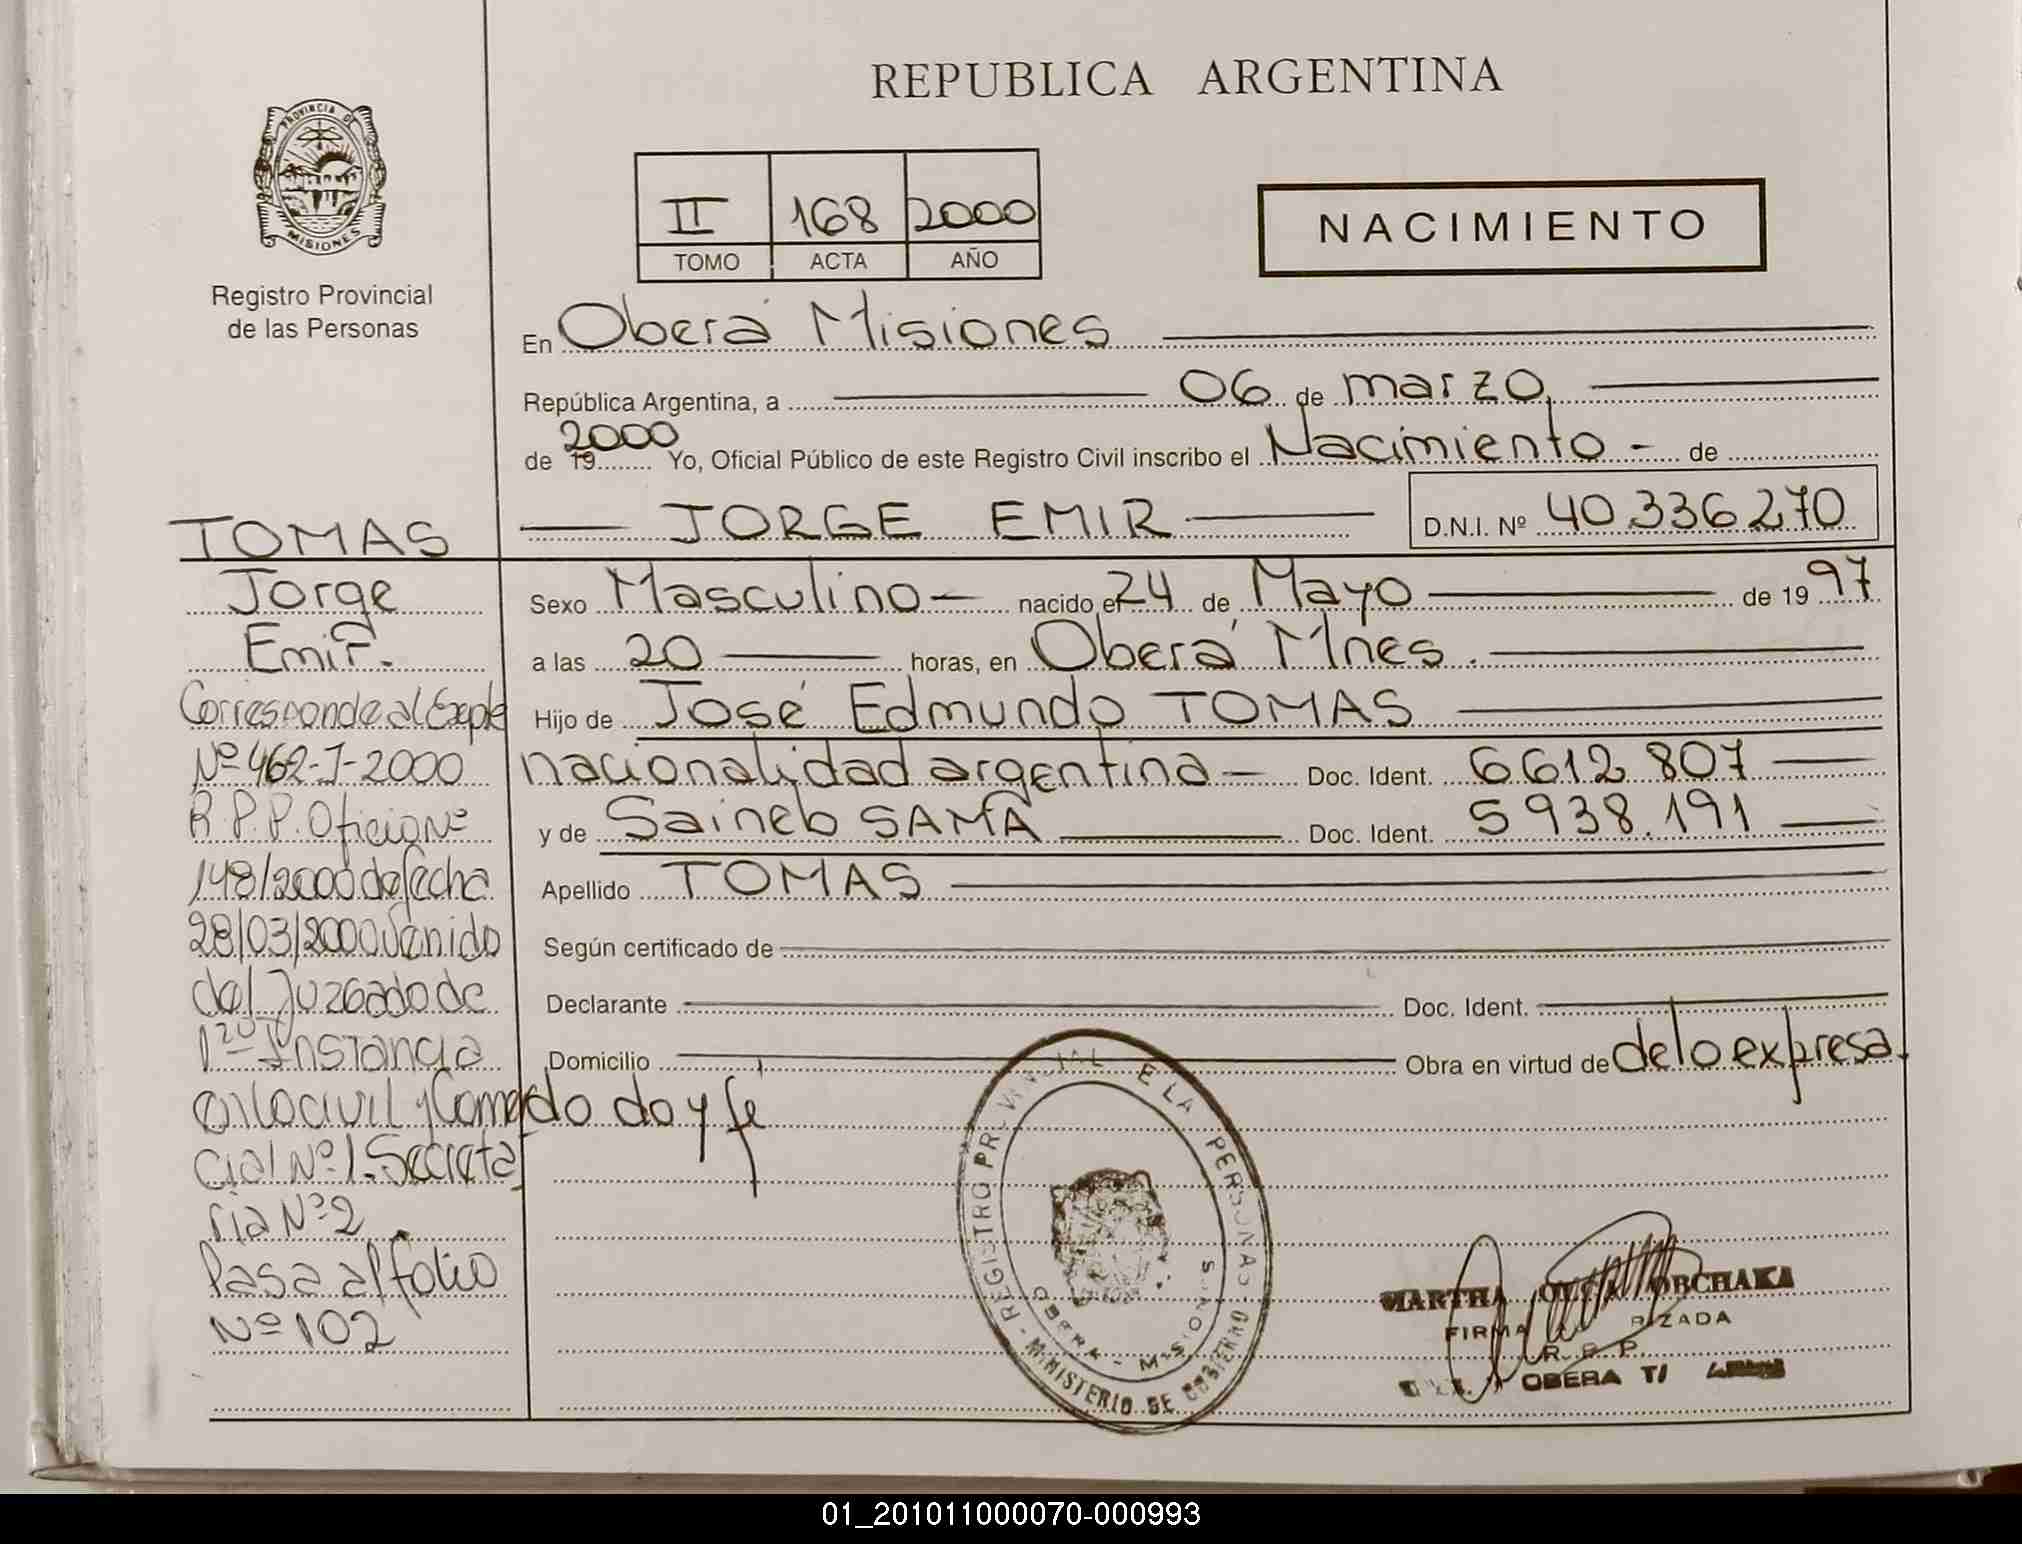 REPUBLICA ARGENTINA
PROVINCIA DE
MISIONES
Registro Provincial
de las Personas
II 168 2000
TOMO ACTA AÑO
NACIMIENTO
En Oberá Misiones
República Argentina, a 06 de marzo
de 19 2000 Yo, Oficial Público de este Registro Civil inscribo el Nacimiento - de
JORGE EMIR D.N.I. Nº 40.336.270
Sexo Masculino - nacido el 24 de Mayo de 19 97
a las 20 horas, en Oberá Mnes.
Hijo de José Edmundo TOMAS
nacionalidad argentina - Doc. Ident. 6612.807
y de Saineb SAMA Doc. Ident. 5938.191
Apellido TOMAS
Según certificado de
Declarante Doc. Ident.
Domicilio Obra en virtud de de lo expresa
do doy fe
TOMAS
Jorge
Emir.
Corresponde al Expte
Nº 462-J-2000
R.P.P. Oficio Nº
148/2000 de fecha
28/03/2000 venido
del Juzgado de
1ra Instancia
en lo civil y Comer
cial Nº 1. Secreta
ria Nº 2
Pasa al folio
Nº 102
REGISTRO PROVINCIAL DE LA PERSONAS
MINISTERIO DE GOBIERNO
OBERA - MISIONES
MARTHA OLGA
FIRMA AUTORIZADA
R. P. P.
OBERA
01_201011000070-000993